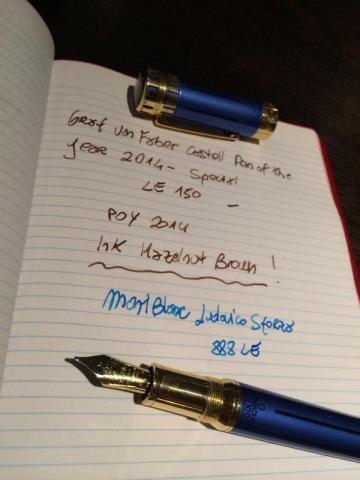 Graf von Faber Castell Pen of the
year 2014 - Special
LE 150
POY 2014
Ink Hazelnut Brown !
MontBlanc Ludovico Sforza
888 LE